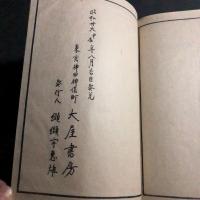 昭和廿六年八月吉日發兌
東京神田神保町
大屋書房
發行人
纐纈